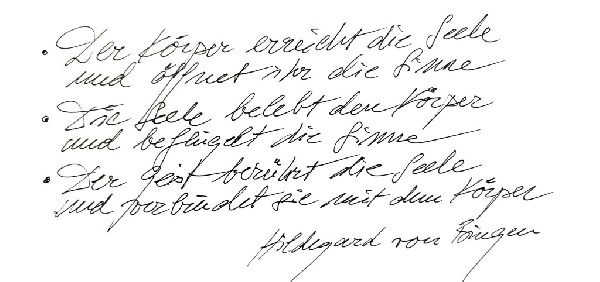 • Der Körper erreicht die Seele
und öffnet ihr die Sinne
• Die Seele belebt den Körper
und beflügelt die Sinne
• Der Geist berührt die Seele
und verbindet sie mit dem Körper
Hildegard von Bingen